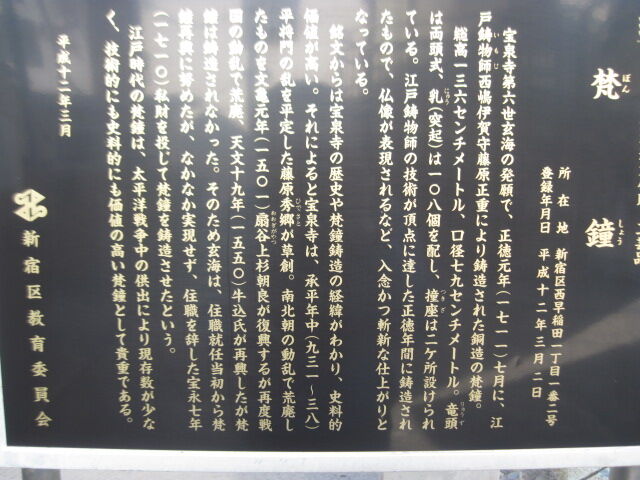 梵鐘
ぼん しょう
所在地 新宿区西早稲田一丁目一番二号
登録年月日 平成十二年三月二日
宝泉寺第六世玄海の発願で、正徳元年(一七一一)七月に、江
戸鋳物師西嶋伊賀守藤原正重により鋳造された銅造の梵鐘。
いもじ
総高一三六センチメートル、口径七九センチメートル。竜頭
りゅうず
は両頭式、乳(突起)は一〇八個を配し、撞座は二ケ所設けられ
にゅう つきざ
ている。江戸鋳物師の技術が頂点に達した正徳年間に鋳造され
たもので、仏像が表現されるなど、入念かつ斬新な仕上がりと
なっている。
銘文からは宝泉寺の歴史や梵鐘鋳造の経緯がわかり、史料的
価値が高い。それによると宝泉寺は、承平年中(九三一～三八)
平将門の乱を平定した藤原秀郷が草創。南北朝の動乱で荒廃し
ひでさと
たものを文亀元年(一五〇一)扇谷上杉朝良が復興するが再度戦
おおぎがやつ
国の動乱で荒廃、天文十九年(一五五〇)牛込氏が再興したが梵
鐘は鋳造されなかった。そのため玄海は、住職就任当初から梵
鐘再興に努めたが、なかなか実現せず、住職を辞した宝永七年
(一七一〇)私財を投じて梵鐘を鋳造させたという。
江戸時代の梵鐘は、太平洋戦争中の供出により現存数が少な
く、技術的にも史料的にも価値の高い梵鐘として貴重である。
平成十二年三月
新宿区教育委員会